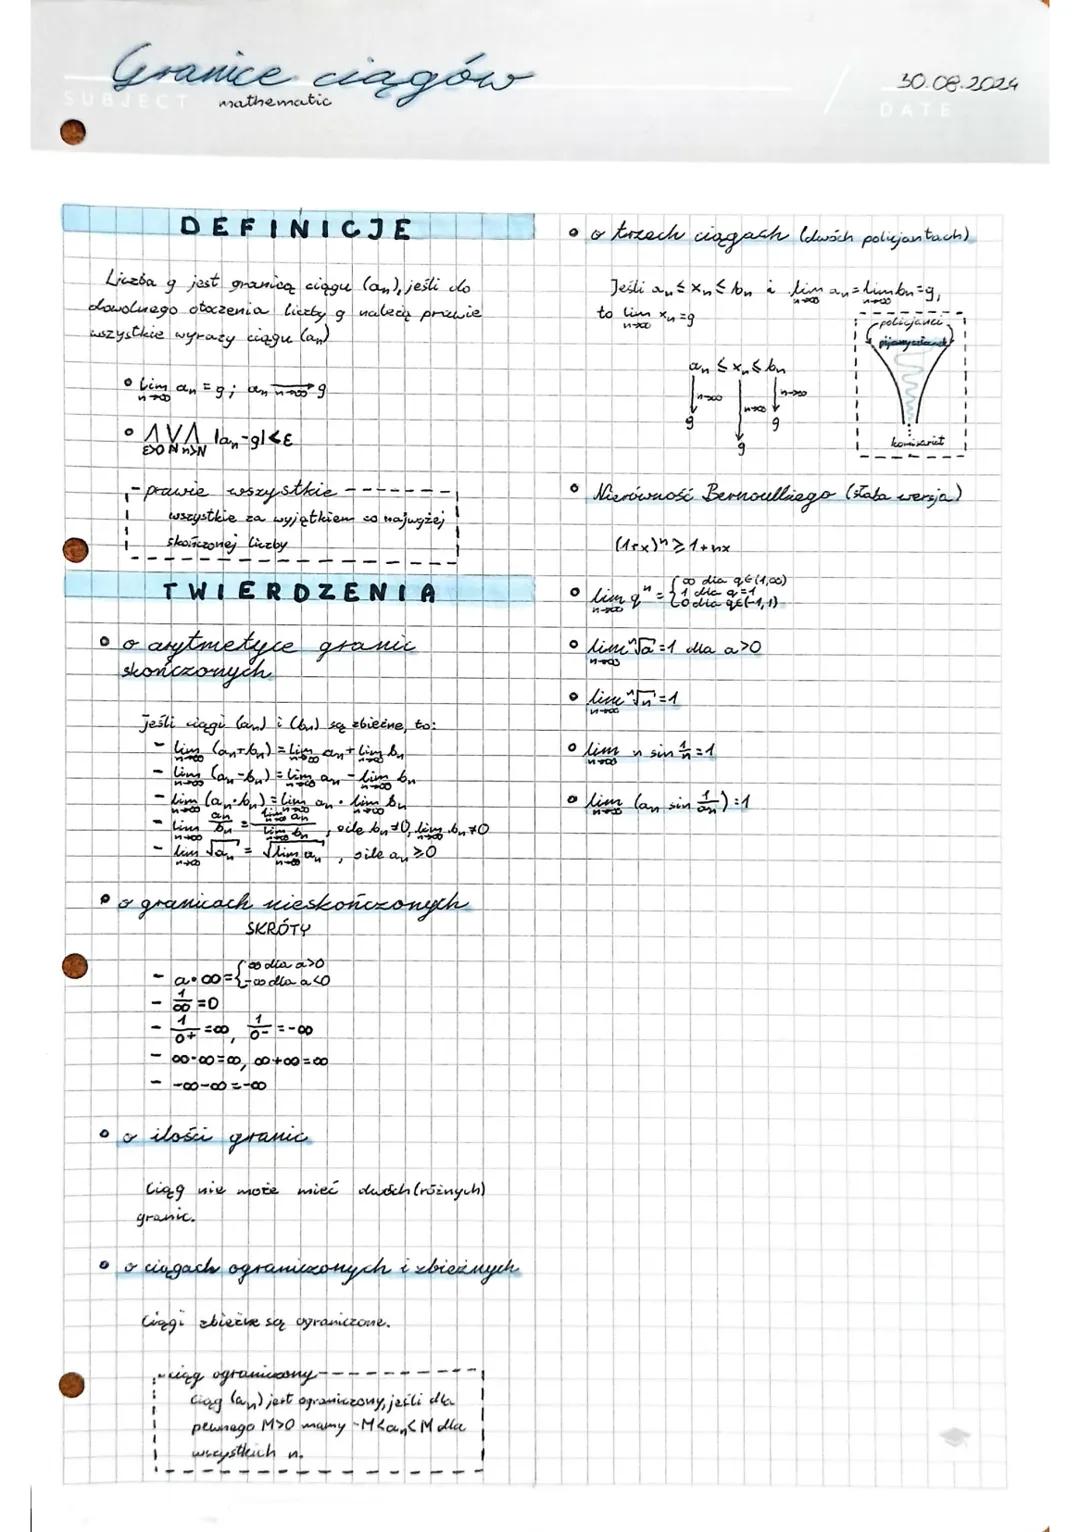 Granice ciągów
SUBJECT mathematic
30.08.2024
DATE
DEFINICJE
Liczba g jest granicą ciągu (aₙ), jeśli do
dowolnego otoczenia liczby g należą prawie
wszystkie wyrazy ciągu (aₙ)
lim n→∞ aₙ = g; aₙ n→∞ → g
⋀ ε>0 ⋁ N ⋀ n>N |aₙ-g|<ε
prawie wszystkie
wszystkie za wyjątkiem co najwyżej
skończonej liczby
TWIERDZENIA
o arytmetyce granic
skończonych
Jeśli ciągi (aₙ) i (bₙ) są zbieżne, to:
- lim n→∞ (aₙ+bₙ) = lim n→∞ aₙ + lim n→∞ bₙ
- lim n→∞ (aₙ-bₙ) = lim n→∞ aₙ - lim n→∞ bₙ
- lim n→∞ (aₙ·bₙ) = lim n→∞ aₙ · lim n→∞ bₙ
- lim n→∞ aₙ/bₙ = lim n→∞ aₙ / lim n→∞ bₙ, o ile bₙ≠0, lim n→∞ bₙ≠0
- lim n→∞ √aₙ = √lim n→∞ aₙ, o ile aₙ≥0
o granicach nieskończonych
SKRÓTY
- a·∞ = { ∞ dla a>0
-∞ dla a<0
- 1/∞ = 0
- 1/0+ = ∞, 1/0- = -∞
- ∞·∞=∞, ∞+∞=∞
- -∞-∞=-∞
o ilości granic
Ciąg nie może mieć dwóch (różnych)
granic.
o ciągach ograniczonych i zbieżnych
Ciągi zbieżne są ograniczone.
ciąg ograniczony
ciąg (aₙ) jest ograniczony, jeśli dla
pewnego M>0 mamy -M<aₙ<M dla
wszystkich n.
o trzech ciągach (dwóch policjantach)
Jeśli aₙ≤xₙ≤bₙ i lim n→∞ aₙ = lim n→∞ bₙ = g,
to lim n→∞ xₙ = g
policjanci
aₙ ≤ xₙ ≤ bₙ
n→∞ n→∞ n→∞
g g g
komisariat
Nierówność Bernoulliego (słaba wersja)
(1+x)ⁿ ≥ 1+nx
lim n→∞ qⁿ = { ∞ dla q∈(1,∞)
1 dla q=1
0 dla q∈(-1,1)
lim n→∞ ⁿ√a = 1 dla a>0
lim n→∞ ⁿ√n = 1
lim n→∞ n sin 1/n = 1
lim n→∞ (aₙ sin 1/aₙ) = 1